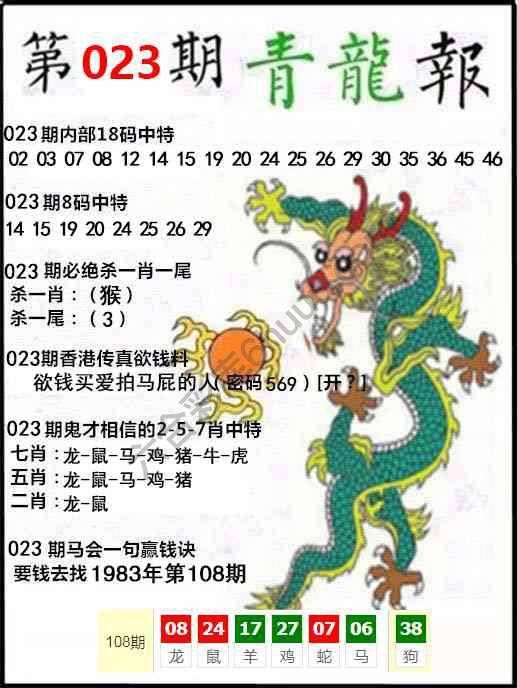 第023期青龍報
023期内部18码中特
02 03 07 08 12 14 15 19 20 24 25 26 29 30 35 36 45 46
023期8码中特
14 15 19 20 24 25 26 29
023 期必绝杀一肖一尾
杀一肖：（猴）
杀一尾：（3）
023期香港传真欲钱料
欲钱买爱拍马屁的人(密码569)[开?]
023期鬼才相信的2-5-7肖中特
七肖：龙-鼠-马-鸡-猪-牛-虎
五肖：龙-鼠-马-鸡-猪
二肖：龙-鼠
023 期马会一句赢钱诀
要钱去找1983年第108期
108期 08 24 17 27 07 06 38
龙 鼠 羊 鸡 蛇 马 狗